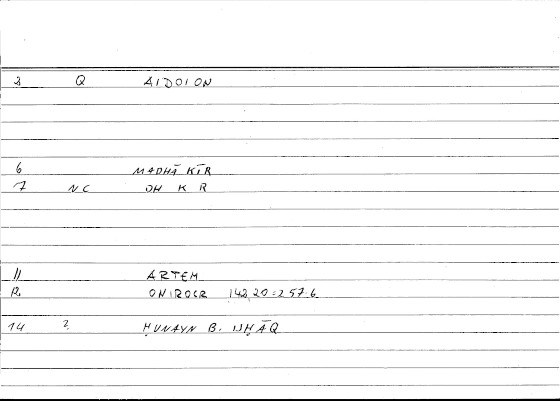 3 Q AIDOION
6 MADHĀKĪR
7 NC DH K R
11 ARTEM
12 ONIROCR 142,20 = 257.6
14 2 ḤUNAYN B. ISḤĀQ